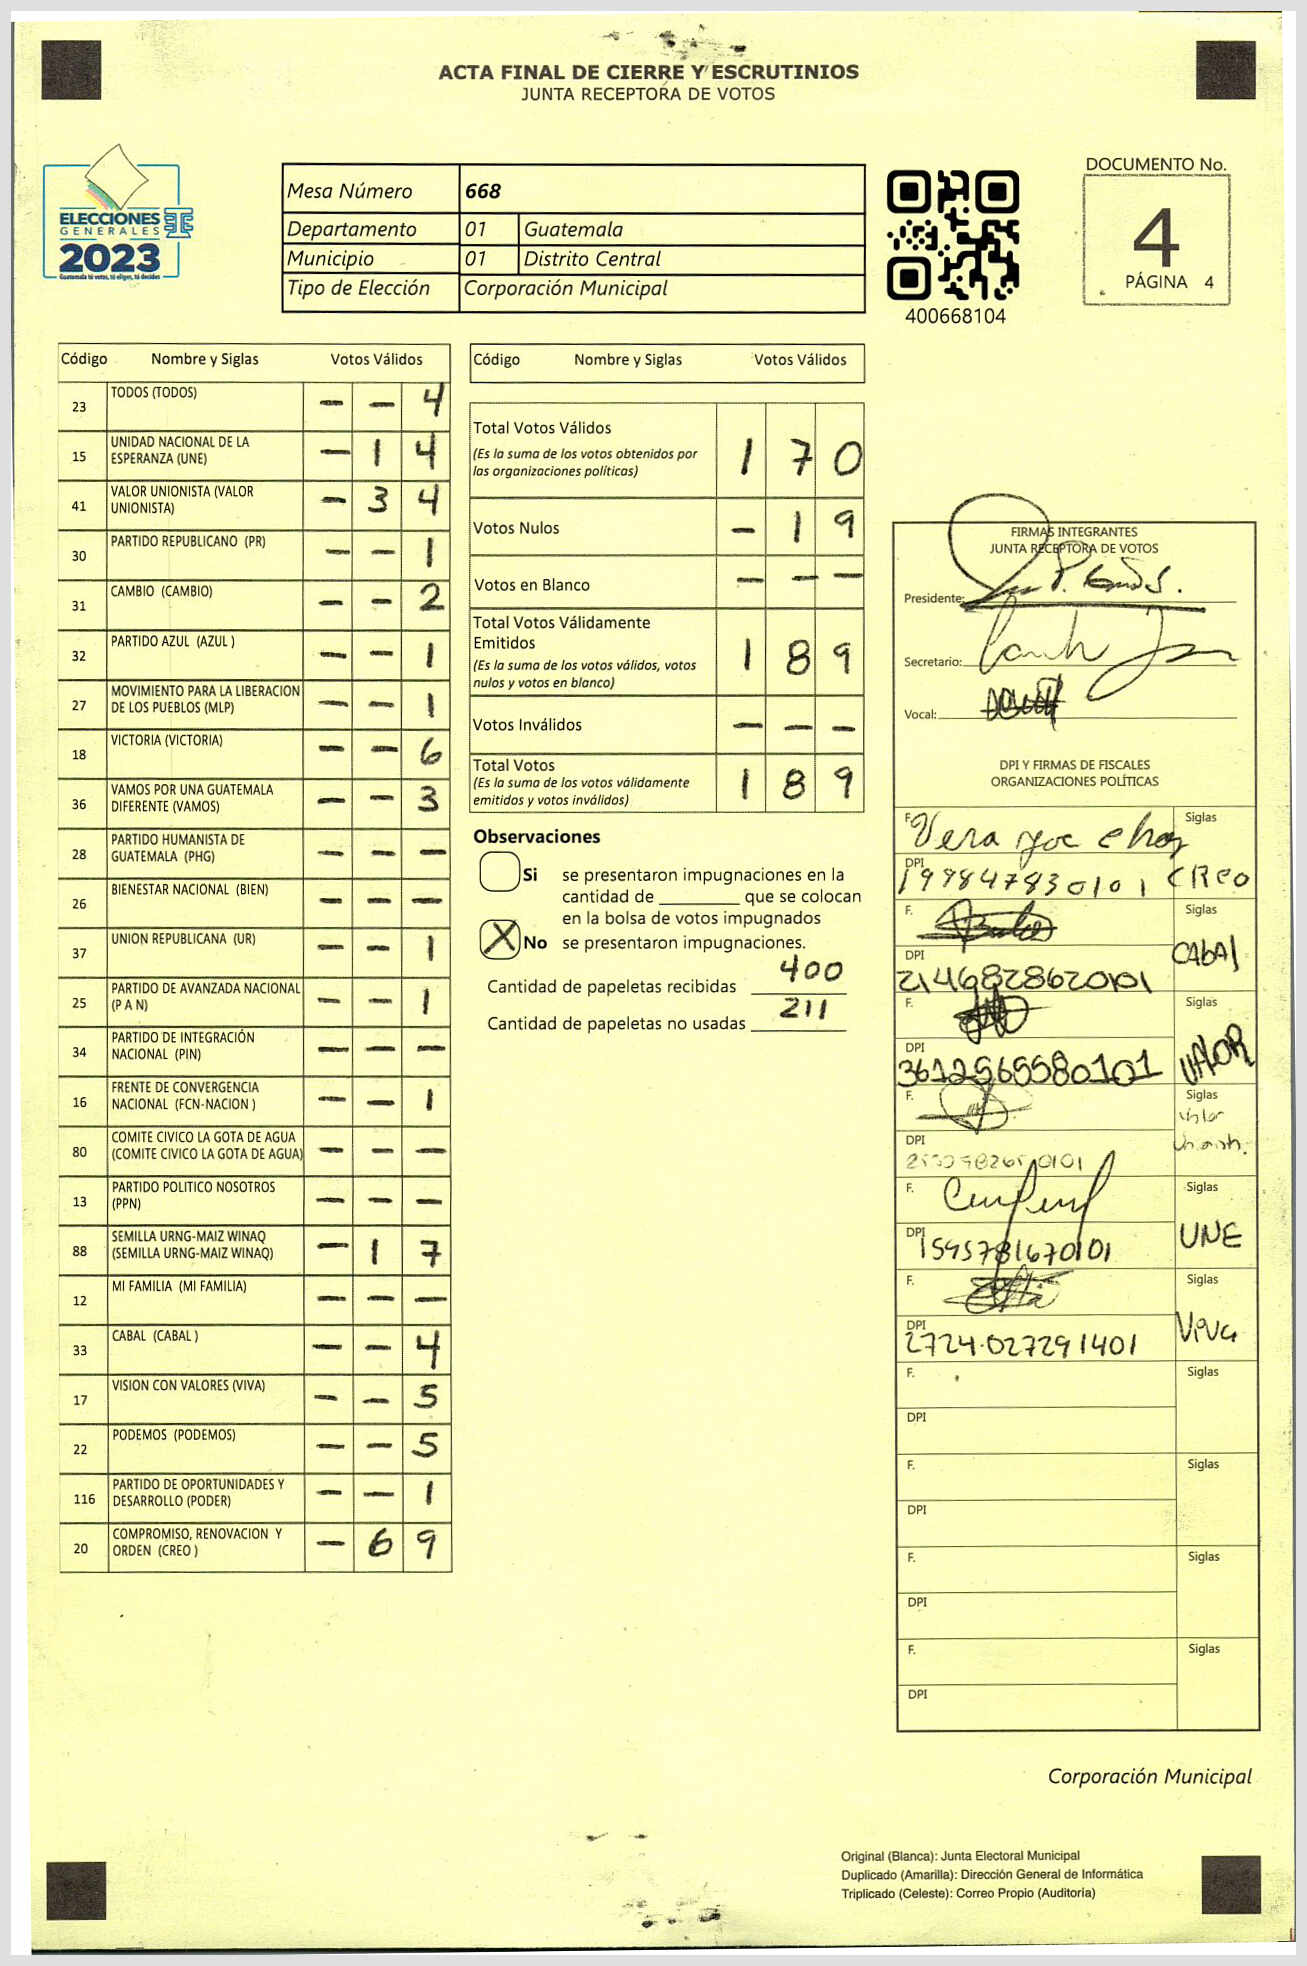 ACTA FINAL DE CIERRE Y ESCRUTINIOS
JUNTA RECEPTORA DE VOTOS
ELECCIONES
GENERALES
2023
Guatemala tú votas, tú eliges, tú decides
Mesa Número 668
Departamento 01 Guatemala
Municipio 01 Distrito Central
Tipo de Elección Corporación Municipal
400668104
DOCUMENTO No.
4
PÁGINA 4
Código Nombre y Siglas Votos Válidos
23 TODOS (TODOS) — — 4
15 UNIDAD NACIONAL DE LA ESPERANZA (UNE) — 1 4
41 VALOR UNIONISTA (VALOR UNIONISTA) — 3 4
30 PARTIDO REPUBLICANO (PR) — — 1
31 CAMBIO (CAMBIO) — — 2
32 PARTIDO AZUL (AZUL ) — — 1
27 MOVIMIENTO PARA LA LIBERACION DE LOS PUEBLOS (MLP) — — 1
18 VICTORIA (VICTORIA) — — 6
36 VAMOS POR UNA GUATEMALA DIFERENTE (VAMOS) — — 3
28 PARTIDO HUMANISTA DE GUATEMALA (PHG) — — —
26 BIENESTAR NACIONAL (BIEN) — — —
37 UNION REPUBLICANA (UR) — — 1
25 PARTIDO DE AVANZADA NACIONAL (P A N) — — 1
34 PARTIDO DE INTEGRACIÓN NACIONAL (PIN) — — —
16 FRENTE DE CONVERGENCIA NACIONAL (FCN-NACION ) — — 1
80 COMITE CIVICO LA GOTA DE AGUA (COMITE CIVICO LA GOTA DE AGUA) — — —
13 PARTIDO POLITICO NOSOTROS (PPN) — — —
88 SEMILLA URNG-MAIZ WINAQ (SEMILLA URNG-MAIZ WINAQ) — 1 7
12 MI FAMILIA (MI FAMILIA) — — —
33 CABAL (CABAL ) — — 4
17 VISION CON VALORES (VIVA) — — 5
22 PODEMOS (PODEMOS) — — 5
116 PARTIDO DE OPORTUNIDADES Y DESARROLLO (PODER) — — 1
20 COMPROMISO, RENOVACION Y ORDEN (CREO ) — 6 9
Código Nombre y Siglas Votos Válidos
Total Votos Válidos 1 7 0
(Es la suma de los votos obtenidos por
las organizaciones políticas)
Votos Nulos — 1 9
Votos en Blanco — — —
Total Votos Válidamente
Emitidos 1 8 9
(Es la suma de los votos válidos, votos
nulos y votos en blanco)
Votos Inválidos — — —
Total Votos 1 8 9
(Es la suma de los votos válidamente
emitidos y votos inválidos)
Observaciones
Si se presentaron impugnaciones en la
cantidad de ________ que se colocan
en la bolsa de votos impugnados
X No se presentaron impugnaciones.
Cantidad de papeletas recibidas 400
Cantidad de papeletas no usadas 211
FIRMAS INTEGRANTES
JUNTA RECEPTORA DE VOTOS
Presidente:
Secretario:
Vocal:
DPI Y FIRMAS DE FISCALES
ORGANIZACIONES POLÍTICAS
F. Vera Siglas
DPI 199847830101 CREO
F. Siglas
DPI 2146828620101 CABAL
F. Siglas
DPI 3612565580101 VALOR
F. Siglas
DPI
F. Siglas
DPI 1595781670101 UNE
F. Siglas
DPI 2724.027291401 ViVa
F. Siglas
DPI
F. Siglas
DPI
F. Siglas
DPI
F. Siglas
DPI
Corporación Municipal
Original (Blanca): Junta Electoral Municipal
Duplicado (Amarilla): Dirección General de Informática
Triplicado (Celeste): Correo Propio (Auditoría)